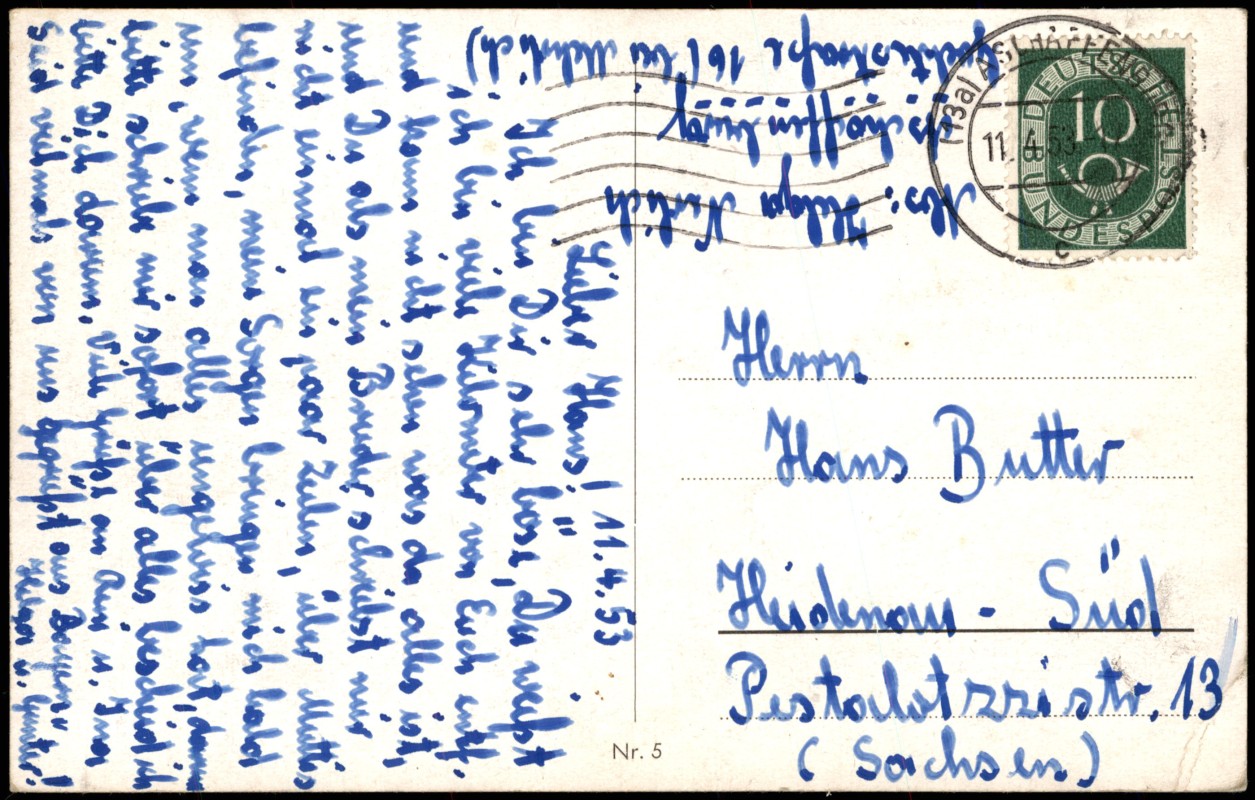 Lieber Hans! 11.4.53
Ich bin Dir sehr böse, Du weißt
ich bin viele Kilometer von Euch entf.
und kann nicht sehen was da alles ist,
und Du als mein Bruder schreibst mir
nicht einmal ein paar Zeilen, über Muttis
befinden, meine Sorgen bringen mich bald
um, wenn man alles ungewiss hat, darum
bitte schreib mir sofort über alles bescheid ich
bitte Dich darum. Viele Grüße an Anni u. Ina
Seid vielmals von uns gegrüßt aus "Bayern"
Helga u. Günter!
Abs: Helga
Aschaffenburg
161 (bei Mehrlich)
(13a) ASCHAFFENBURG
11.4.53
c
DEUTSCHE BUNDESPOST
10
Herrn
Hans Butter
Heidenau - Süd
Pestalotzzistr. 13
(Sachsen)
Nr. 5